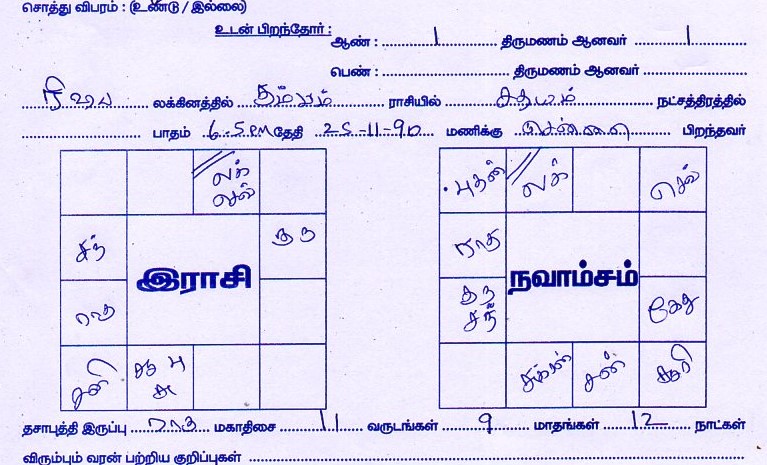 சொத்து விபரம் : (உண்டு / இல்லை)
உடன் பிறந்தோர் : ஆண் : 1 திருமணம் ஆனவர் 1
பெண் : திருமணம் ஆனவர்
ரிஷப லக்கினத்தில் கும்பம் ராசியில் சதயம் நட்சத்திரத்தில்
பாதம் 6-5 PM தேதி 25-11-90 மணிக்கு சென்னை பிறந்தவர்
லக் செவ்
சந் குரு
இராசி
ராகு
சனி சூ பு சு
புதன் லக் செவ்
ராகு
நவாம்சம்
குரு சந் கேது
சுக்ரன் சனி சூரி
தசாபுத்தி இருப்பு ராகு மகாதிசை 11 வருடங்கள் 9 மாதங்கள் 12 நாட்கள்
விரும்பும் வரன் பற்றிய குறிப்புகள்